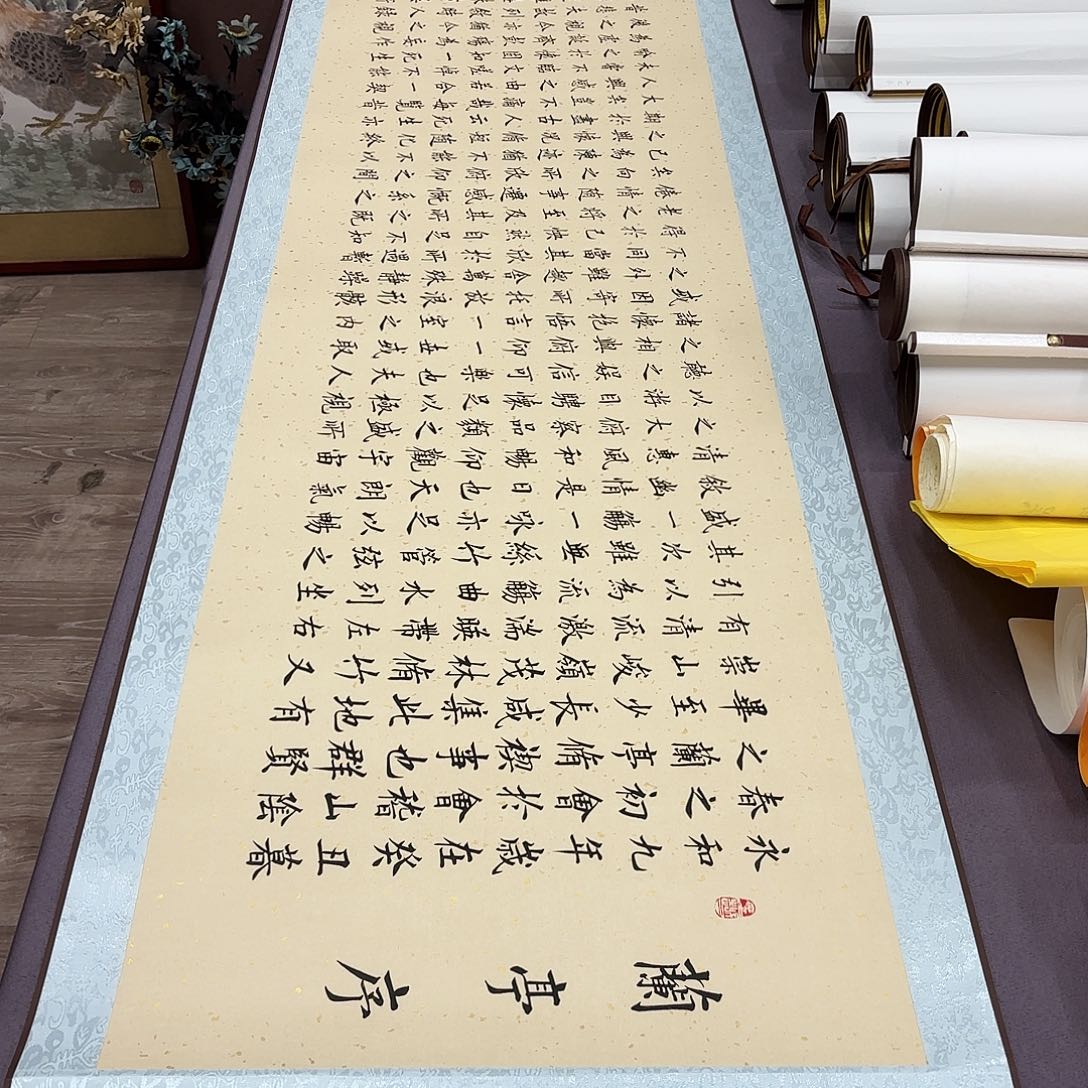 蘭亭序
永和九年歲在癸丑暮
春之初會於會稽山陰
之蘭亭脩禊事也群賢
畢至少長咸集此地有
崇山峻嶺茂林脩竹又
有清流激湍暎帶左右
引以為流觴曲水列坐
其次雖無絲竹管弦之
盛一觴一詠亦足以暢
敘幽情是日也天朗氣
清惠風和暢仰觀宇宙
之大俯察品類之盛所
以游目騁懷足以極視
聽之娛信可樂也夫人
之相與俯仰一世或取
諸懷抱悟言一室之內
或因寄所托放浪形骸
之外雖趣舍萬殊靜躁
不同當其欣於所遇暫
得於己快然自足不知
老之將至及其所之既
倦情隨事遷感慨係之
矣向之所欣俯仰之間
已為陳迹猶不能不以
之興懷況脩短隨化終
期於盡古人云死生亦
大矣豈不痛哉每覽昔
人興感之由若合一契
未嘗不臨文嗟悼不能
喻之於懷固知一死生
為虛誕齊彭殤為妄作
後之視今亦猶今之視